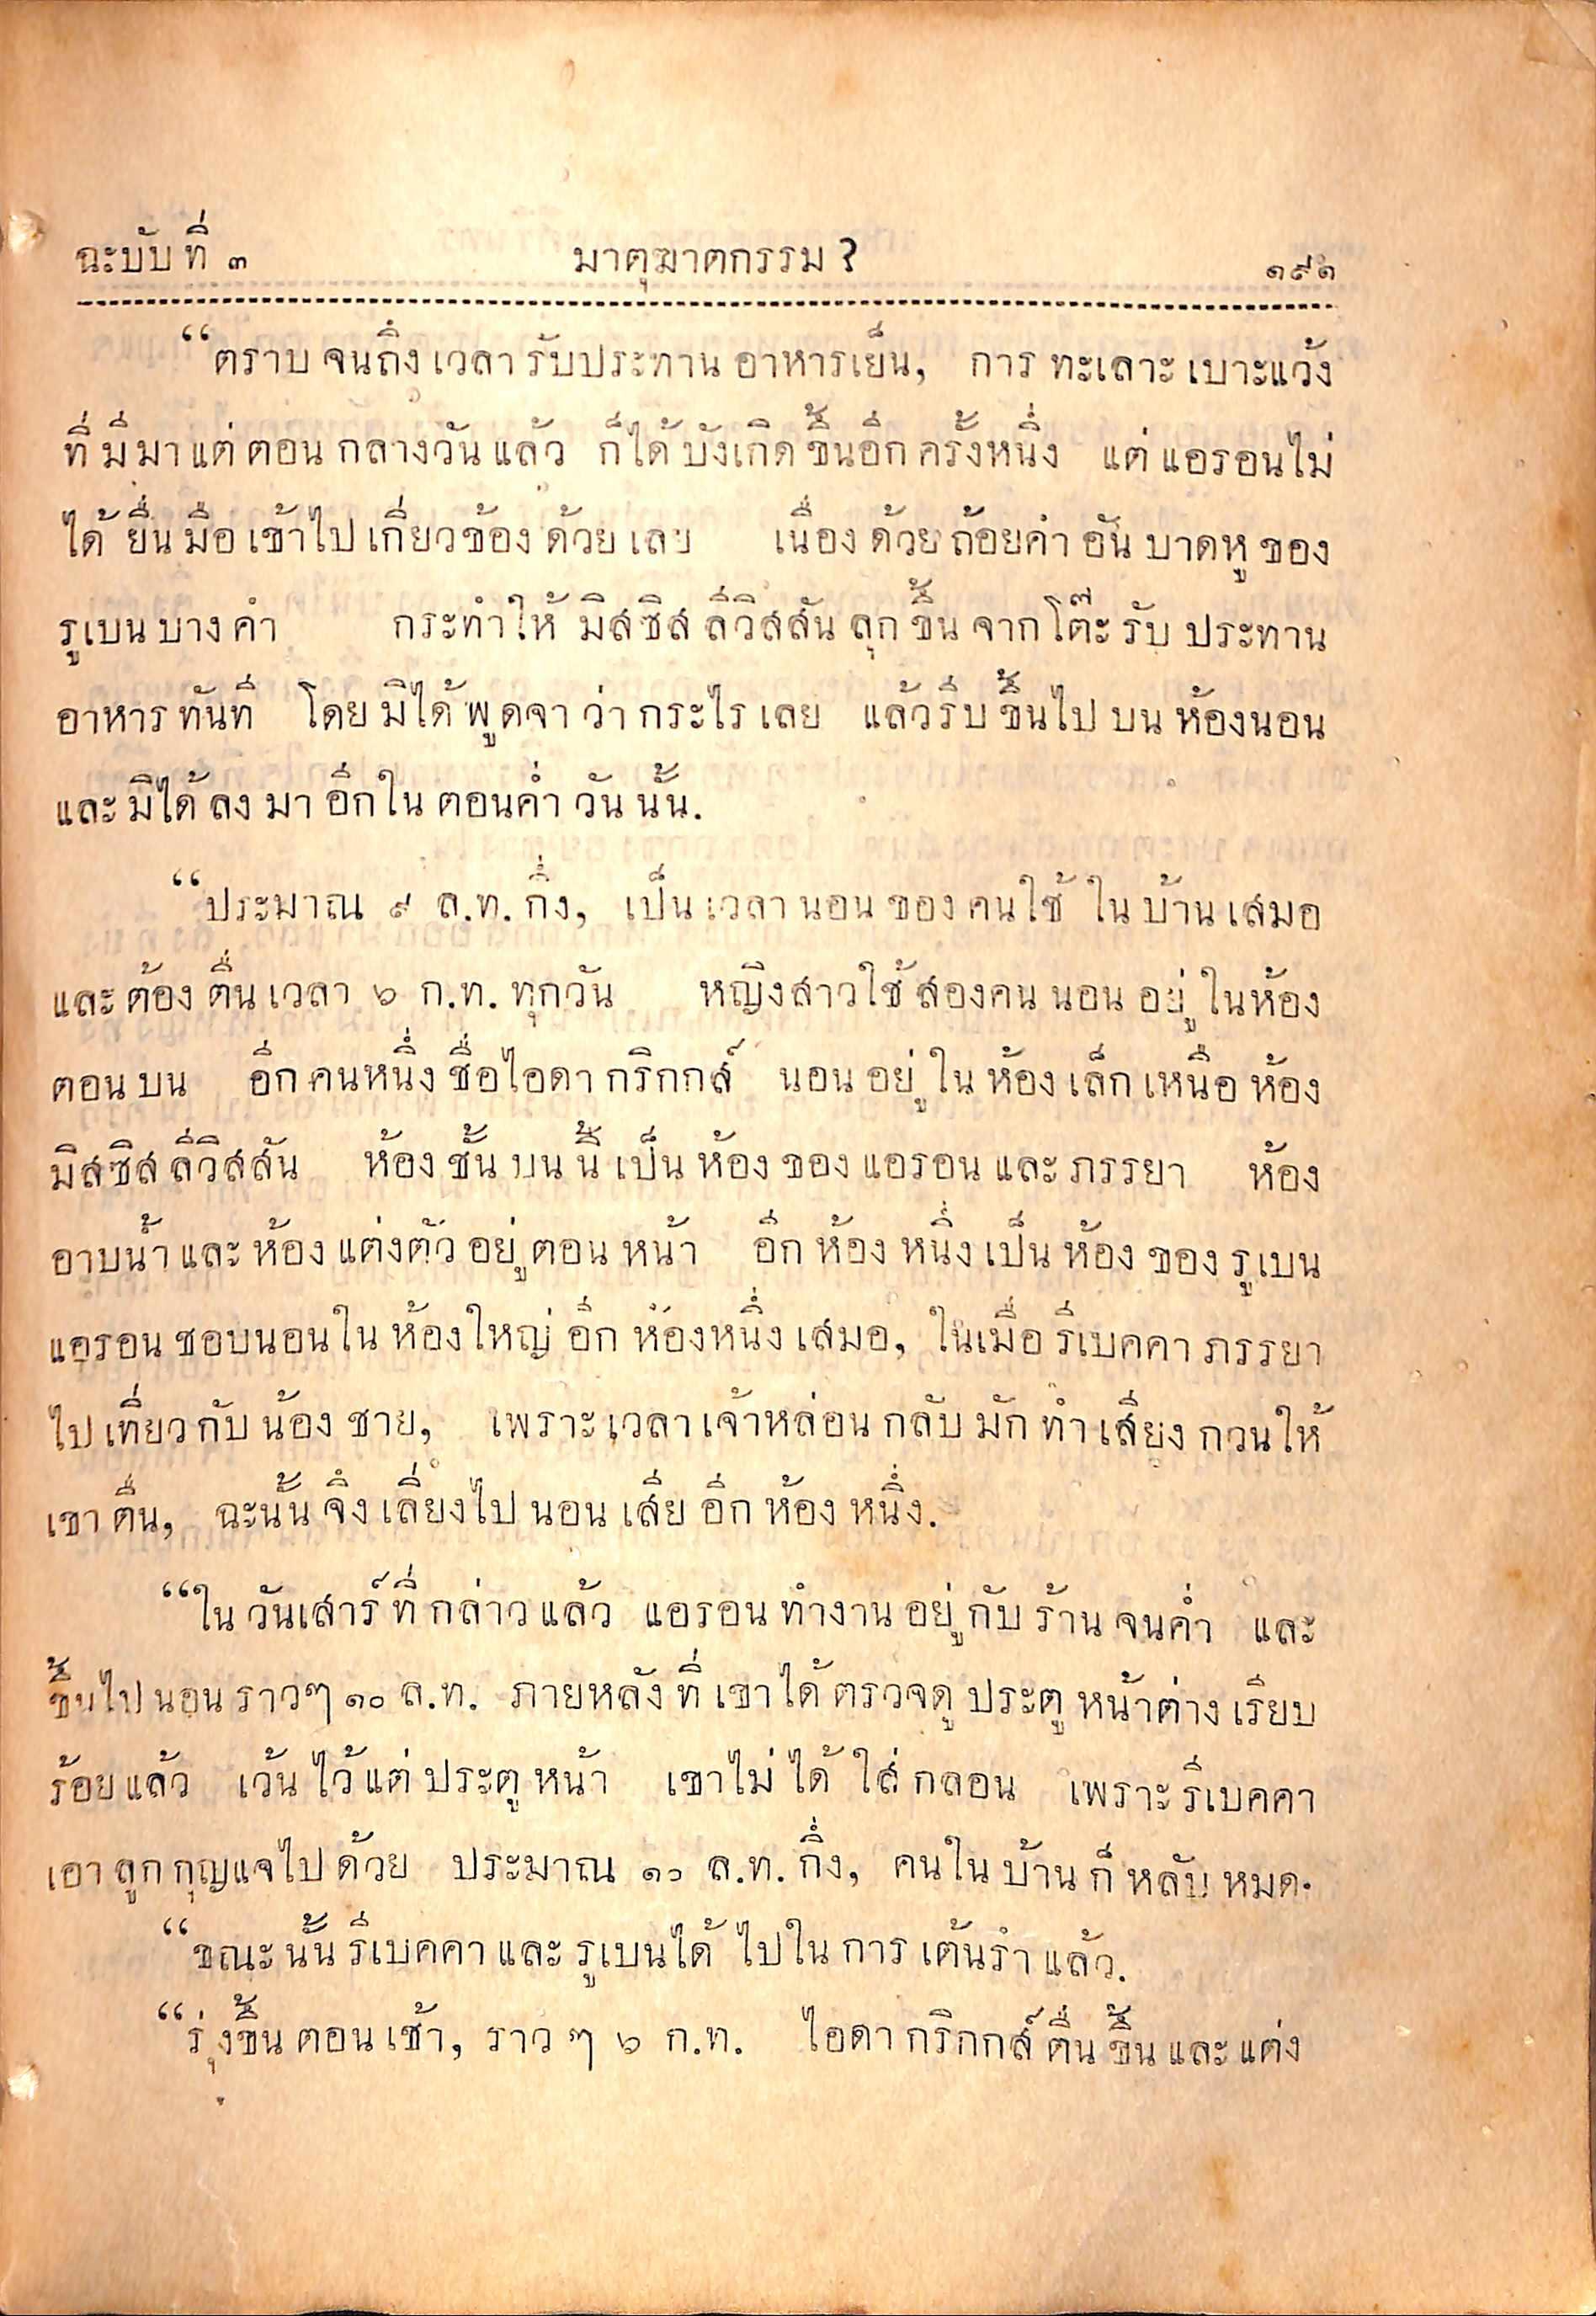 ฉะบับที่ ๓ มาตุฆาตกรรม ? ๑๙๑
“ตราบจนถึงเวลารับประทานอาหารเย็น, การทะเลาะเบาะแว้ง
ที่มีมาแต่ตอนกลางวันแล้ว ก็ได้บังเกิดขึ้นอีกครั้งหนึ่ง แต่แอรอนไม่
ได้ยื่นมือเข้าไปเกี่ยวข้องด้วยเลย เนื่องด้วยถ้อยคำอันบาดหูของ
รูเบนบางคำ กระทำให้มิสซิสลีวิสสันลุกขึ้นจากโต๊ะรับประทาน
อาหารทันที โดยมิได้พูดจาว่ากระไรเลย แล้วรีบขึ้นไปบนห้องนอน
และมิได้ลงมาอีกในตอนค่ำวันนั้น.
“ประมาณ ๙ ล.ท. กึ่ง, เป็นเวลานอนของคนใช้ในบ้านเสมอ
และต้องตื่นเวลา ๖ ก.ท. ทุกวัน หญิงสาวใช้สองคนนอนอยู่ในห้อง
ตอนบน อีกคนหนึ่งชื่อไอดา กริกกส์ นอนอยู่ในห้องเล็กเหนือห้อง
มิสซิสลีวิสสัน ห้องชั้นบนนี้เป็นห้องของแอรอนและภรรยา ห้อง
อาบน้ำและห้องแต่งตัวอยู่ตอนหน้า อีกห้องหนึ่งเป็นห้องของรูเบน
แอรอนชอบนอนในห้องใหญ่อีกห้องหนึ่งเสมอ, ในเมื่อรีเบคคาภรรยา
ไปเที่ยวกับน้องชาย, เพราะเวลาเจ้าหล่อนกลับมักทำเสียงกวนให้
เขาตื่น, ฉะนั้นจึงเลี่ยงไปนอนเสียอีกห้องหนึ่ง.
“ในวันเสาร์ที่กล่าวแล้ว แอรอนทำงานอยู่กับร้านจนค่ำ และ
ขึ้นไปนอนราวๆ ๑๐ ล.ท. ภายหลังที่เขาได้ตรวจดูประตูหน้าต่างเรียบ
ร้อยแล้ว เว้นไว้แต่ประตูหน้า เขาไม่ได้ใส่กลอน เพราะรีเบคคา
เอาลูกกุญแจไปด้วย ประมาณ ๑๐ ล.ท. กึ่ง, คนในบ้านก็หลับหมด.
“ขณะนั้นรีเบคคาและรูเบนได้ไปในการเต้นรำแล้ว.
“รุ่งขึ้นตอนเช้า, ราวๆ ๖ ก.ท. ไอดา กริกกส์ตื่นขึ้นและแต่ง